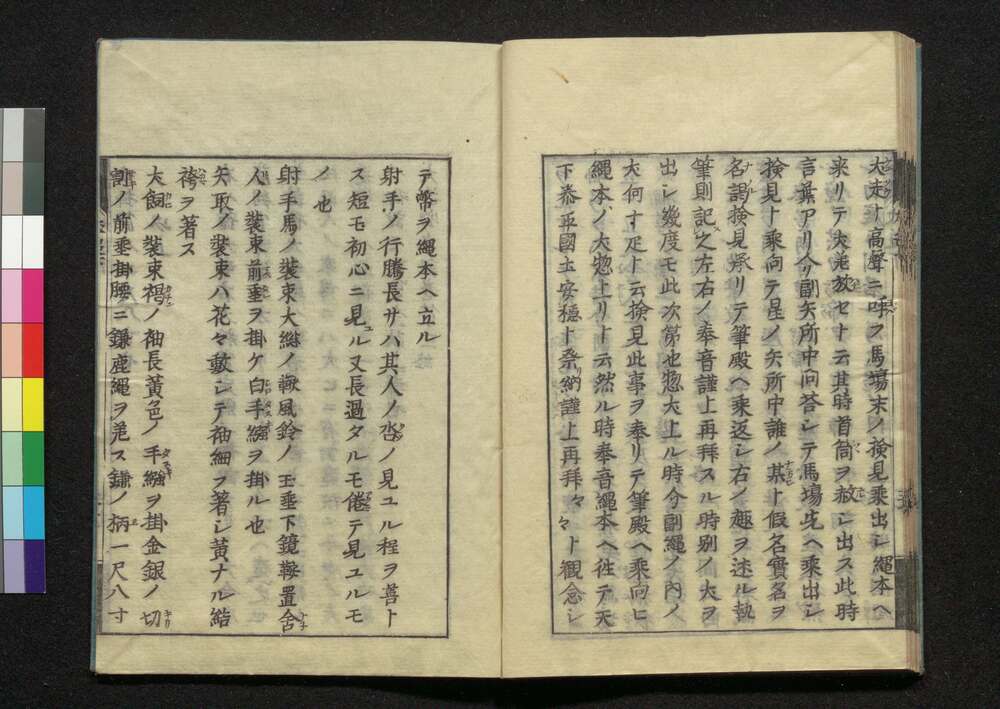 大走ト高聲ニ呼ス馬場末ノ検見乗出シ繩本ヘ
来リテ犬ヲ放セト云其時首筒ヲ放シ出ス此時
言葉アリ介副矢所中向答シテ馬場先ヘ乗出シ
検見ト乗向テ是ノ矢所中誰ノ某ト假名實名ヲ
名謁検見承リテ筆殿ヘ乗返シ右ノ趣ヲ述ル執
筆則記之左右ノ奉音謹上再拝スル時別ノ犬ヲ
出シ幾度モ此次第也惣犬上ル時分副繩ノ内ノ
犬何寸疋ト云検見此事ヲ奉リテ筆殿ヘ乗向ヒ
繩本ノ犬惣上リト云然ル時奉音繩本ヘ徃テ天
下泰平國土安穏ト奈納謹上再拝々々ト観念シ
テ幣ヲ繩本ヘ立ル
射手ノ行騰長サハ其人ノ沓ノ見ユル程ヲ善ト
ス短モ初心ニ見ル又長過タルモ倦テ見ユルモ
ノ也
射手馬ノ装束大総ノ鞦風鈴ノ玉垂下鏡鞍置舎
人ノ装束前垂ヲ掛ケ白手繦ヲ掛ル也
矢取ノ装束ハ花々敷シテ袖細ヲ著シ黄ナル結
袴ヲ著ス
犬飼ノ装束褐ノ袖長黄色ノ手繦ヲ掛金銀ノ切
割ノ前垂掛腰ニ鎌鹿繩ヲ差ス鎌ノ柄一尺八寸